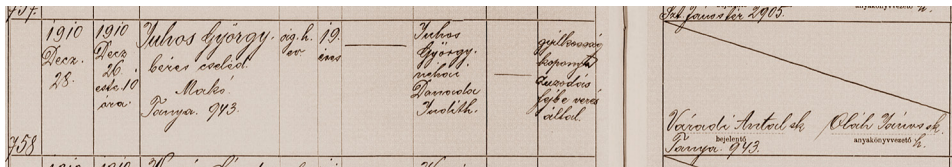 757.
1910 Decz. 28.
1910 Decz 26. este 10 óra.
Juhos György.
béres cseléd.
Makó.
Tanya. 943.
ág. h.
ev.
19.
éves
Juhos
György.
néhai
Damada
Judith.
gyilkosság
koponya
zúzódás
fejbe verés
által.
Szt. János tér 2905.
anyakönyvvezető h.
Váradi Antal sk
bejelentő
Tanya. 943.
Oláh János sk.
anyakönyvvezető h.
758